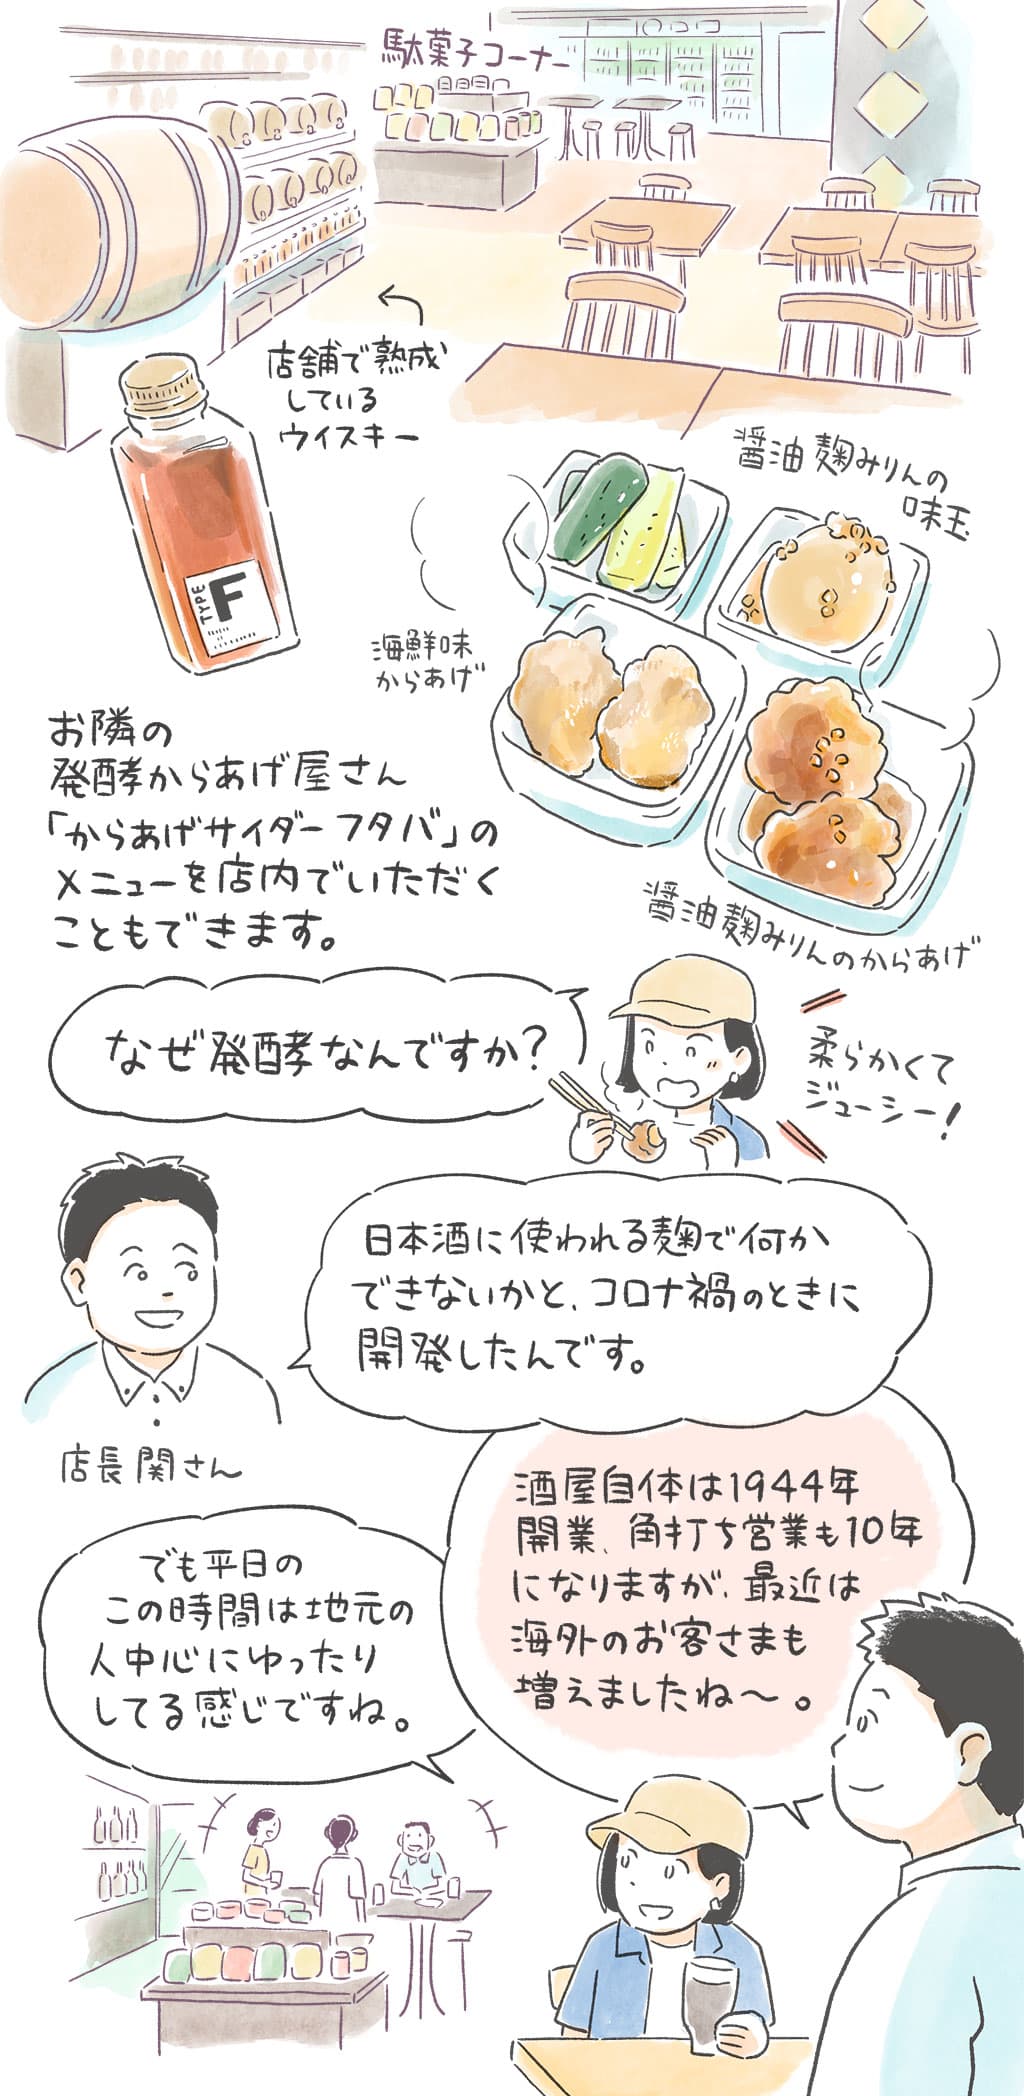 駄菓子コーナー
店舗で熟成
している
ウイスキー
TYPE
F
醤油麹みりんの
味玉
海鮮味
からあげ
お隣の
発酵からあげ屋さん
「からあげサイダーフタバ」の
メニューを店内でいただく
こともできます。
醤油麹みりんのからあげ
なぜ発酵なんですか?
柔らかくて
ジューシー!
日本酒に使われる麹で何か
できないかと、コロナ禍のときに
開発したんです。
店長関さん
酒屋自体は1944年
開業、角打ち営業も10年
になりますが、最近は
海外のお客さまも
増えましたね〜。
でも平日の
この時間は地元の
人中心にゆったり
してる感じですね。